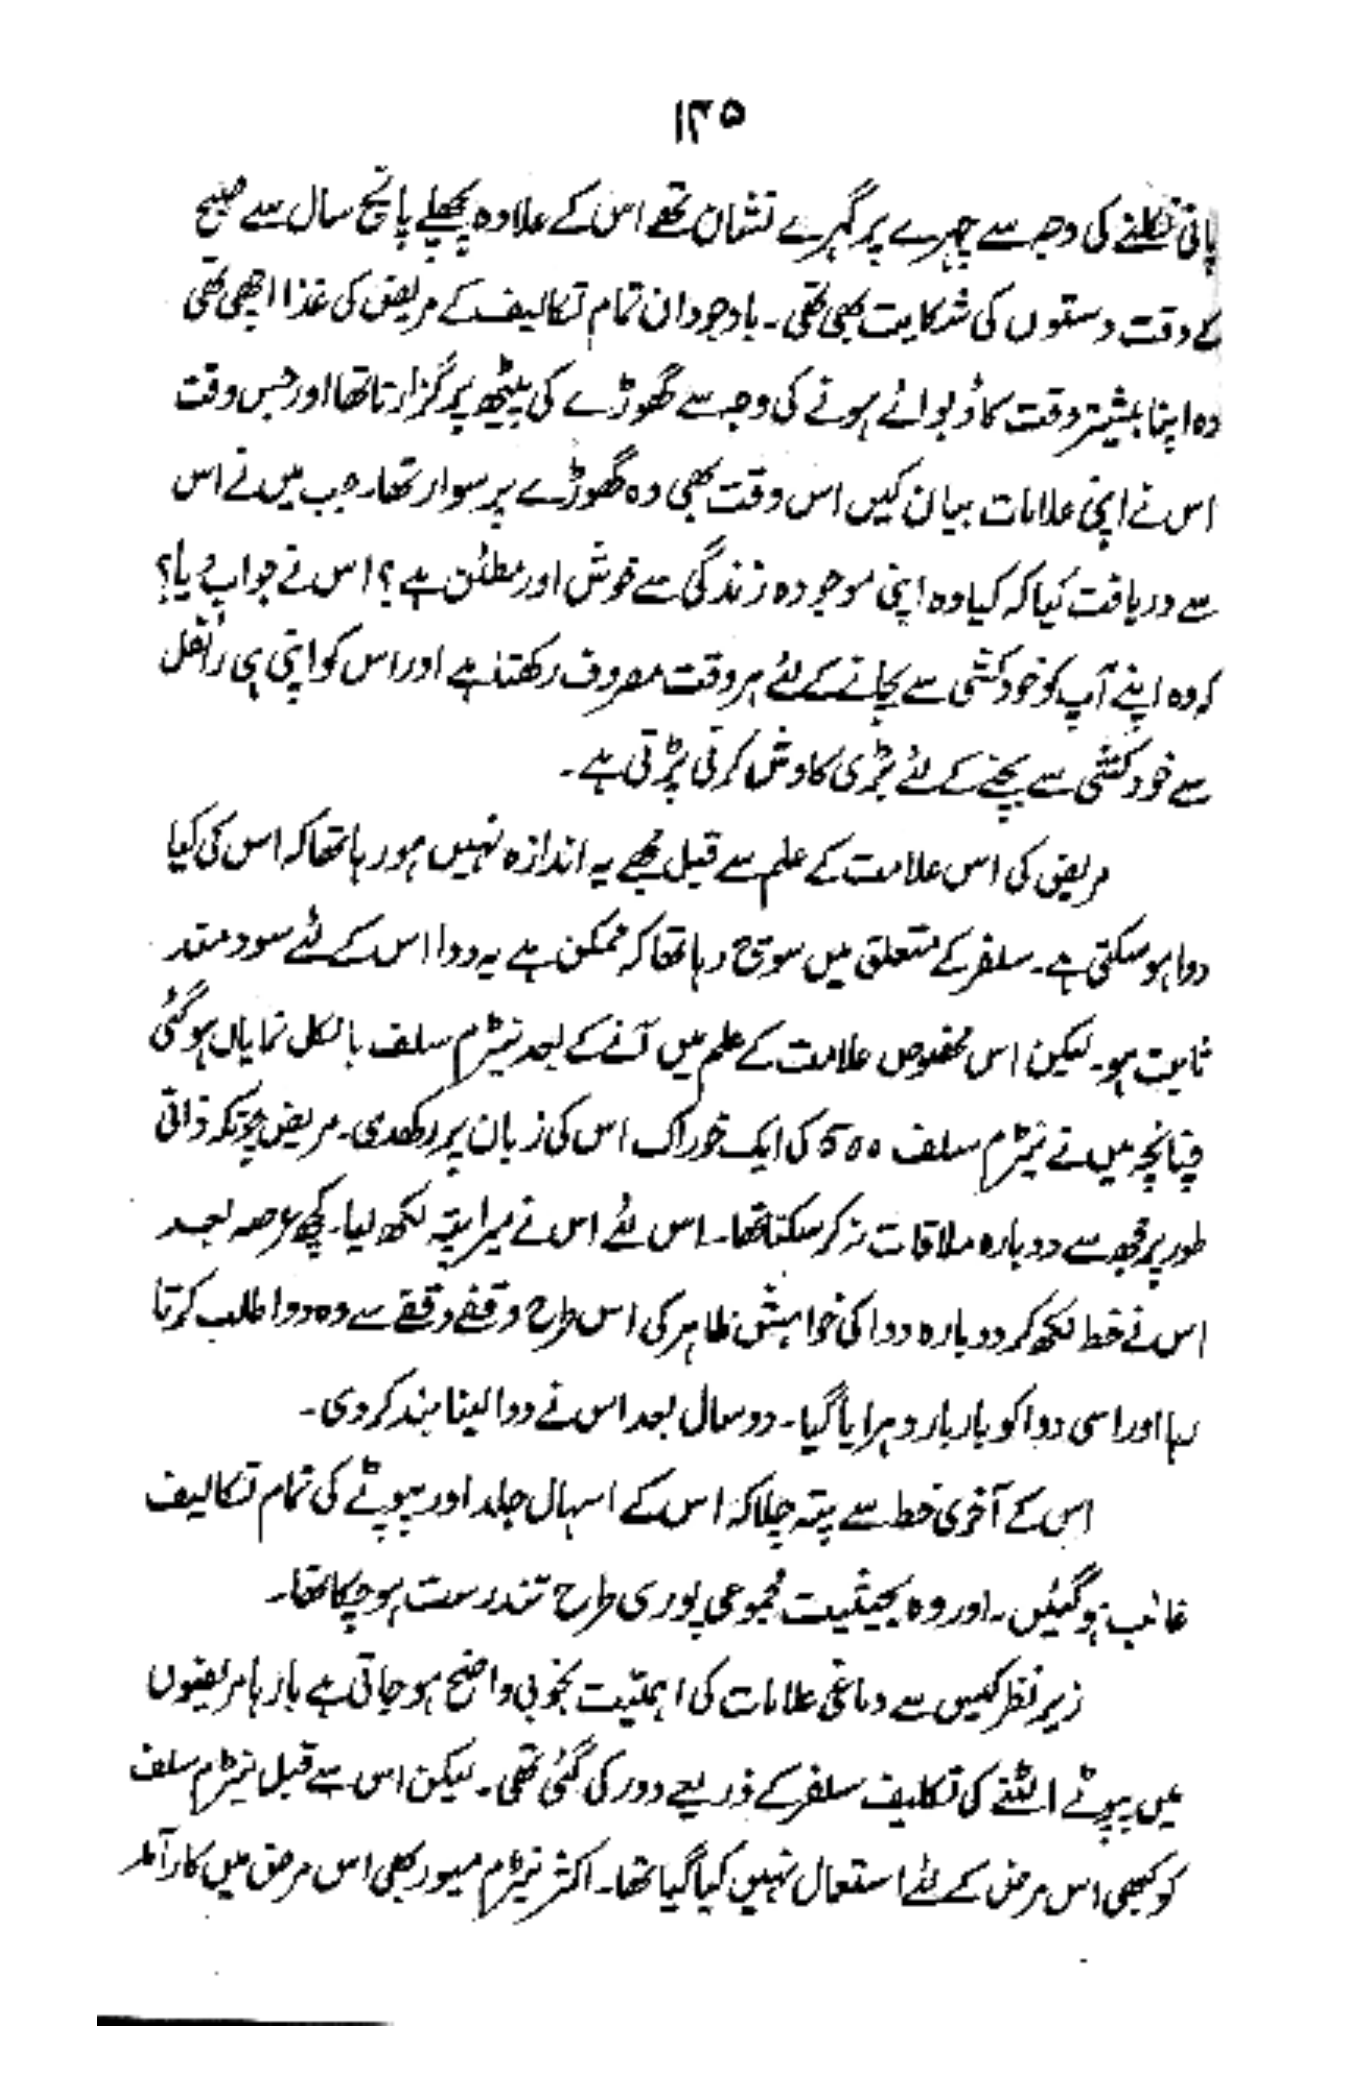 ۱۳۵
پانی نکلنے کی وجہ سے چہرے پر گہرے نشان تھے اس کے علاوہ پچھلے پانچ سال سے صبح
کے وقت دستوں کی شکایت بھی تھی۔ باوجود ان تمام تکالیف کے مریض کی غذا اچھی تھی
وہ اپنا بیشتر وقت کاؤبوائے ہونے کی وجہ سے گھوڑے کی پیٹھ پر گزارتا تھا اور جس وقت
اس نے اپنی علامات بیان کیں اس وقت بھی وہ گھوڑے پر سوار تھا۔ جب میں نے اس
سے دریافت کیا کہ کیا وہ اپنی موجودہ زندگی سے خوش اور مطمئن ہے؟ اس نے جواب دیا؟
کہ وہ اپنے آپ کو خودکشی سے بچانے کے لئے ہر وقت مصروف رکھتا ہے اور اس کو اپنی ہی رائفل
سے خودکشی سے بچنے کے لئے بڑی کاوش کرنی پڑتی ہے۔
مریض کی اس علامت کے علم سے قبل مجھے یہ اندازہ نہیں ہو رہا تھا کہ اس کی کیا
دوا ہو سکتی ہے۔ سلفر کے متعلق میں سوچ رہا تھا کہ ممکن ہے یہ دوا اس کے لئے سود مند
ثابت ہو۔ لیکن اس مخصوص علامت کے علم میں آنے کے بعد نیٹرم سلف بالکل نمایاں ہو گئی
چنانچہ میں نے نیٹرم سلف 500 کی ایک خوراک اس کی زبان پر رکھدی۔ مریض چونکہ ذاتی
طور پر مجھ سے دوبارہ ملاقات نہ کر سکتا تھا۔ اس لئے اس نے میرا پتہ لکھ لیا۔ کچھ عرصہ بعد
اس نے خط لکھ کر دوبارہ دوا کی خواہش ظاہر کی اس طرح وقفے وقفے سے وہ دوا طلب کرتا
رہا اور اسی دوا کو بار بار دہرایا گیا۔ دو سال بعد اس نے دوا لینا بند کر دی۔
اس کے آخری خط سے پتہ چلا کہ اس کے اسہال جلد اور پپوٹے کی تمام تکالیف
غائب ہو گئیں۔ اور وہ بحیثیت مجموعی پوری طرح تندرست ہو چکا تھا۔
زیر نظر کیس سے دماغی علامات کی اہمیّت بخوبی واضح ہو جاتی ہے بارہا مریضوں
میں پپوٹے الٹنے کی تکلیف سلفر کے ذریعے دور کی گئی تھی۔ لیکن اس سے قبل نیٹرم سلف
کو کبھی اس مرض کے لئے استعمال نہیں کیا گیا تھا۔ اکثر نیٹرم میور بھی اس مرض میں کارآمد